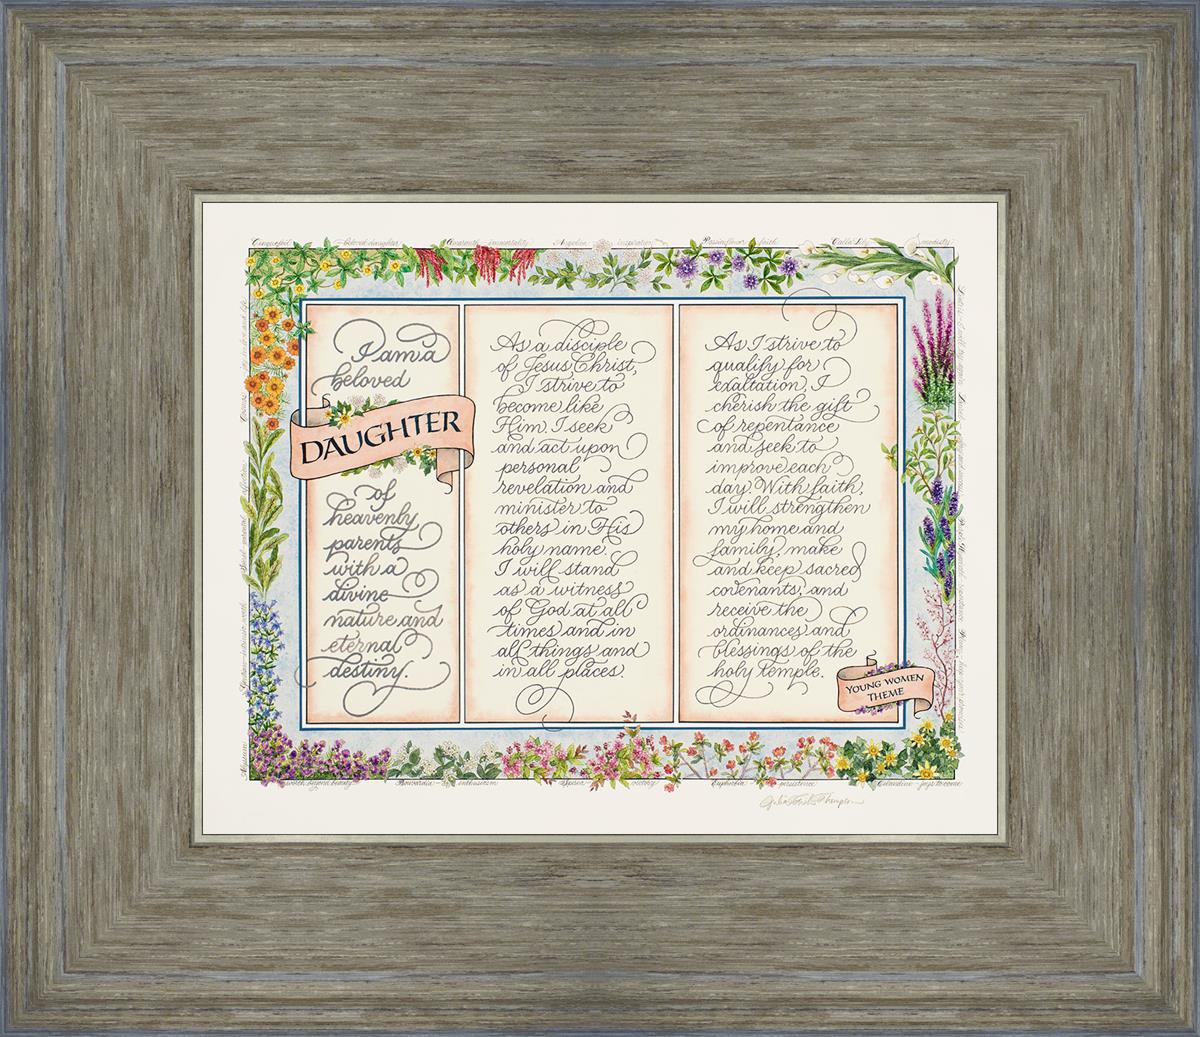 Cinquefoil — beloved daughter Amaranth — immortality Angelica — inspiration Passionflower — faith Calla Lily — modesty
I am a
beloved
DAUGHTER
of
heavenly
parents
with a
divine
nature and
eternal
destiny.
As a disciple
of Jesus Christ,
I strive to
become like
Him. I seek
and act upon
personal
revelation and
minister to
others in His
holy name.
I will stand
as a witness
of God at all
times and in
all things and
in all places.
As I strive to
qualify for
exaltation, I
cherish the gift
of repentance
and seek to
improve each
day. With faith,
I will strengthen
my home and
family, make
and keep sacred
covenants, and
receive the
ordinances and
blessings of the
holy temple.
YOUNG WOMEN
THEME
worth beyond beauty Bouvardia — enthusiasm Spirea — victory Euphorbia — persistence Celandine — joys to come